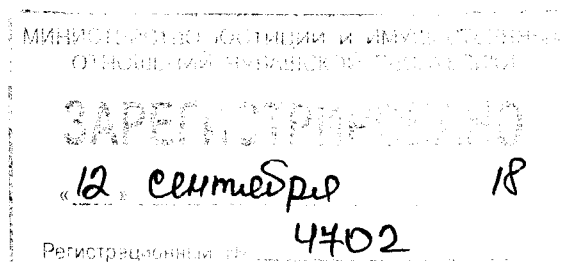 МИНИСТЕРСТВО ЮСТИЦИИ И ИМУЩЕСТВЕННЫХ
ОТНОШЕНИЙ ЧУВАШСКОЙ РЕСПУБЛИКИ
ЗАРЕГИСТРИРОВАНО
«12» сентября 18
Регистрационный № 4702